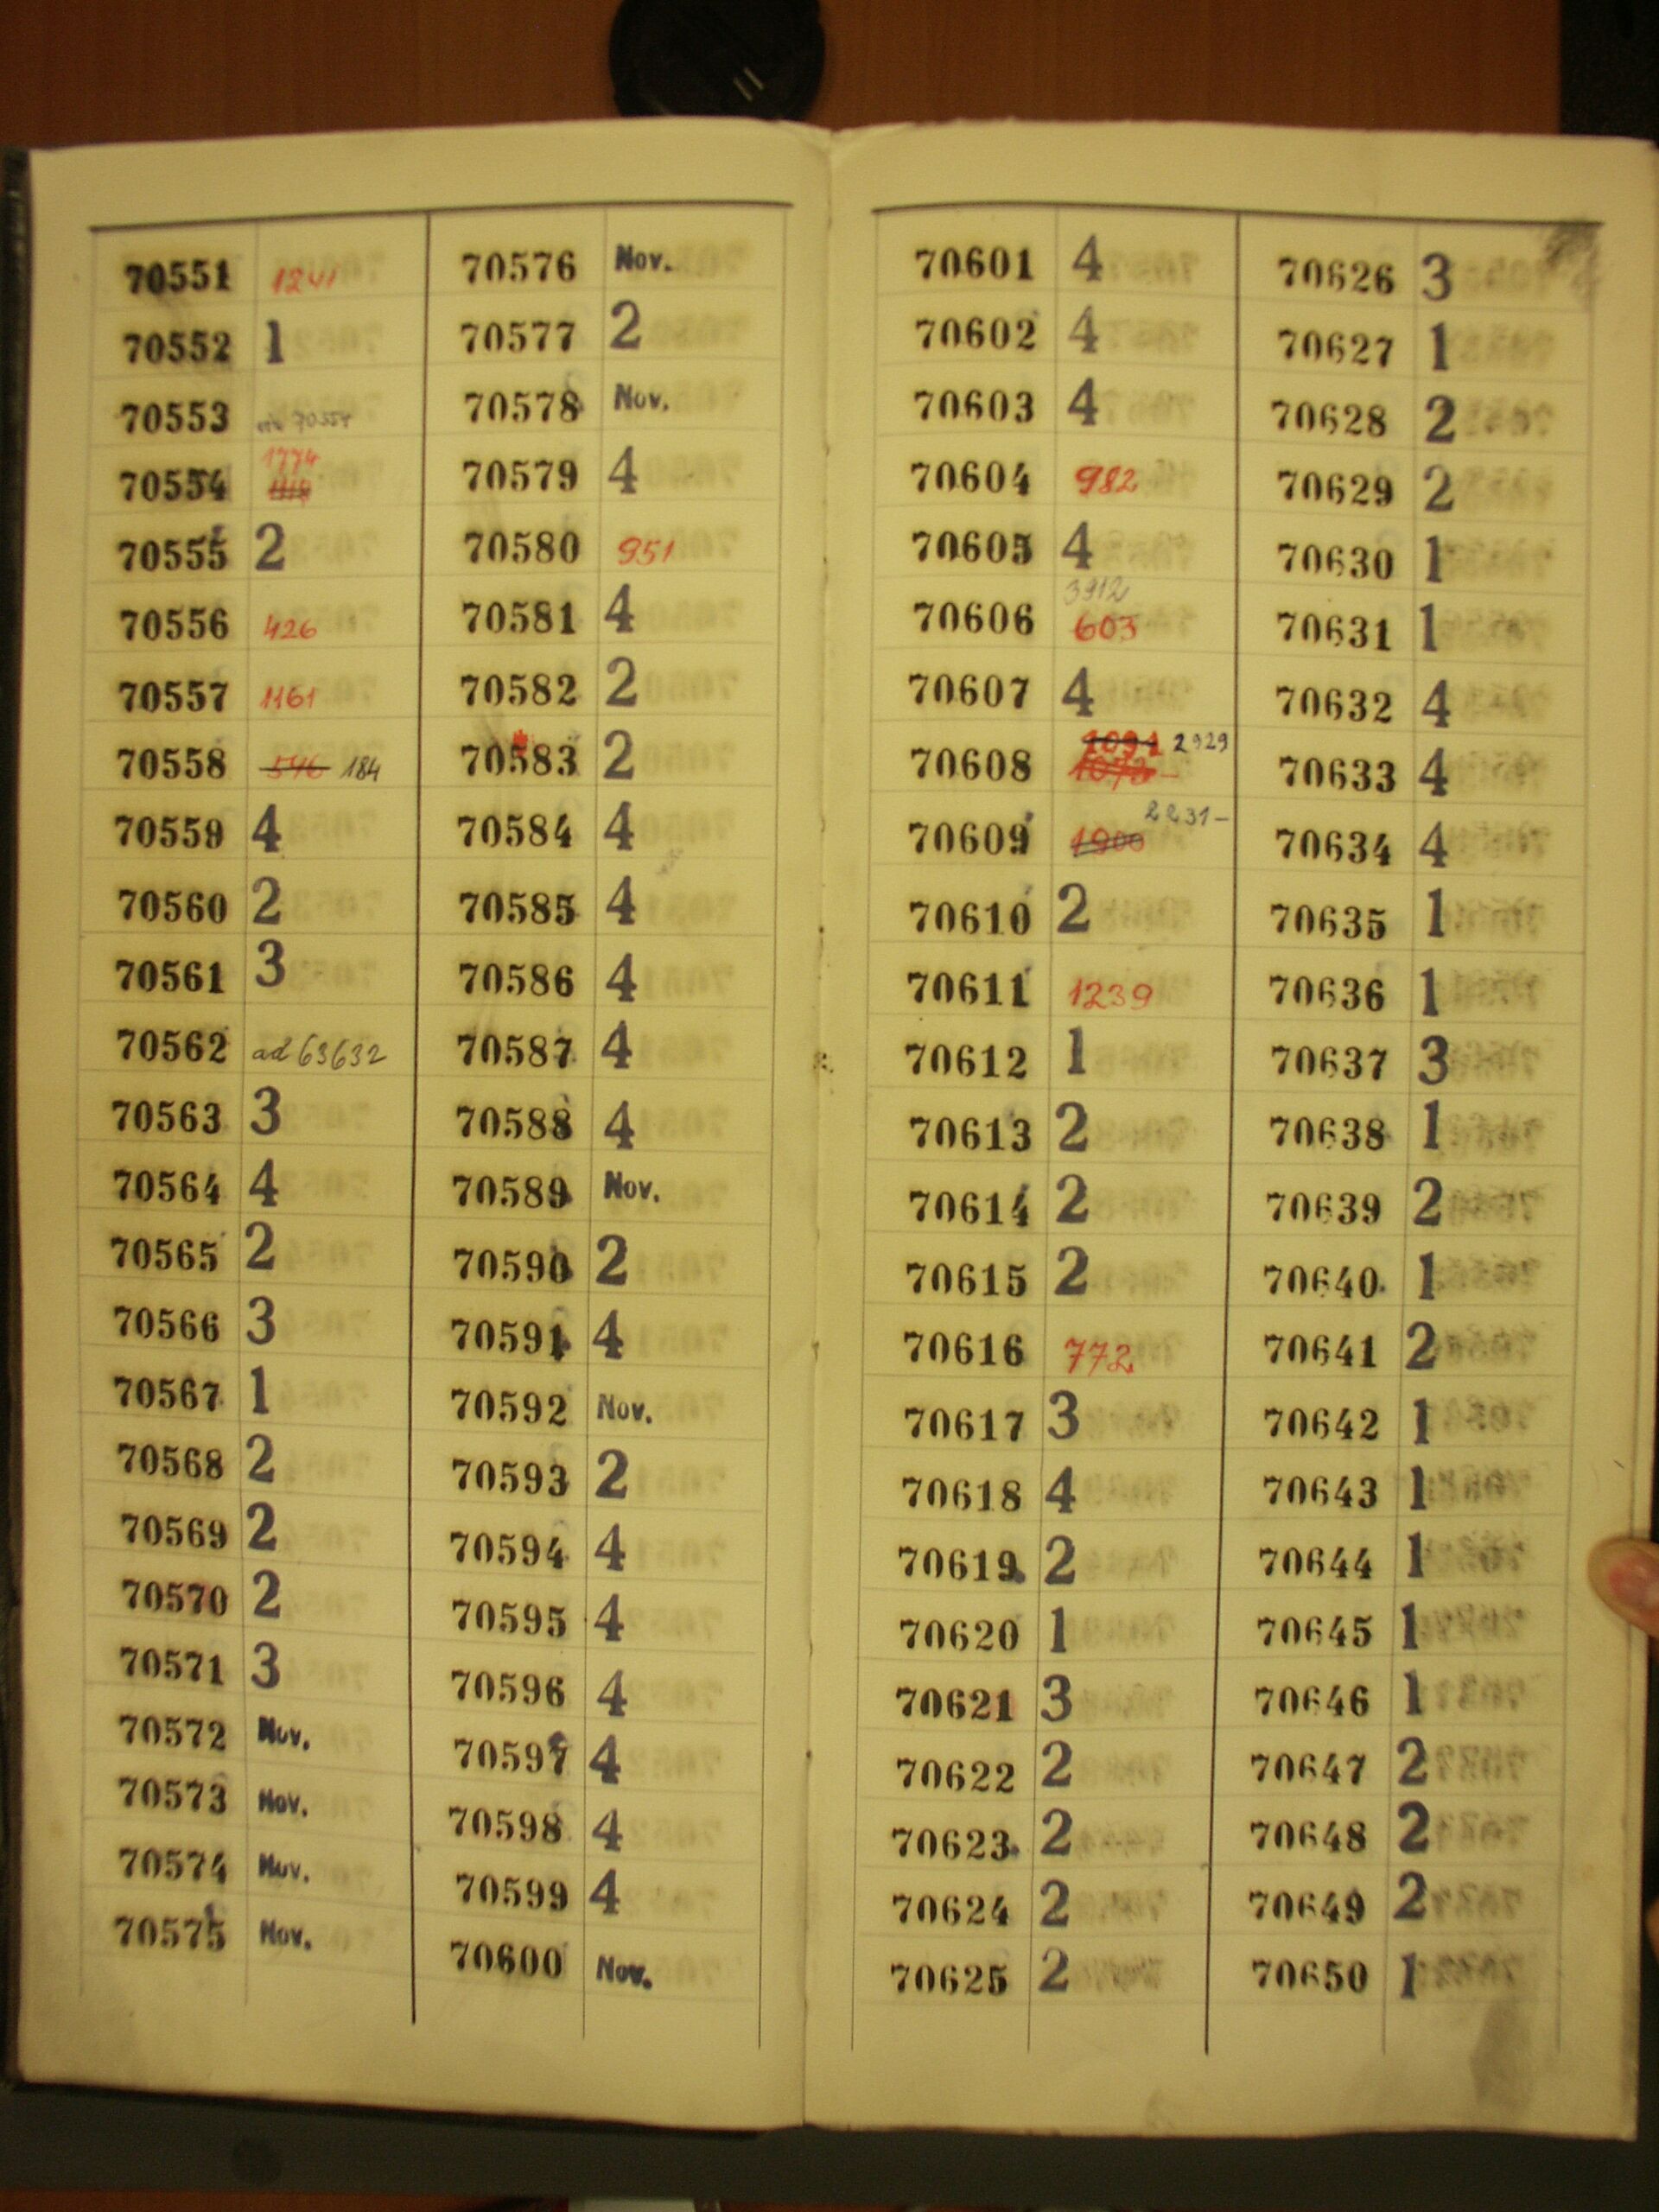 70551
70552 1
70553 70554
70554 1774
70555 2
70556 426
70557 1161
70558 546 184
70559 4
70560 2
70561 3
70562 ad 63632
70563 3
70564 4
70565 2
70566 3
70567 1
70568 2
70569 2
70570 2
70571 3
70572 Nov.
70573 Nov.
70574 Nov.
70575 Nov.
70576 Nov.
70577 2
70578 Nov.
70579 4
70580 951
70581 4
70582 2
70583 2
70584 4
70585 4
70586 4
70587 4
70588 4
70589 Nov.
70590 2
70591 4
70592 Nov.
70593 2
70594 4
70595 4
70596 4
70597 4
70598 4
70599 4
70600 Nov.
70601 4
70602 4
70603 4
70604 982
70605 4
3912
70606 603
70607 4
1094 2929
70608 1073
2231-
70609 1900
70610 2
70611 1239
70612 1
70613 2
70614 2
70615 2
70616 772
70617 3
70618 4
70619 2
70620 1
70621 3
70622 2
70623 2
70624 2
70625 2
70626 3
70627 1
70628 2
70629 2
70630 1
70631 1
70632 4
70633 4
70634 4
70635 1
70636 1
70637 3
70638 1
70639 2
70640 1
70641 2
70642 1
70643 1
70644 1
70645 1
70646 1
70647 2
70648 2
70649 2
70650 1